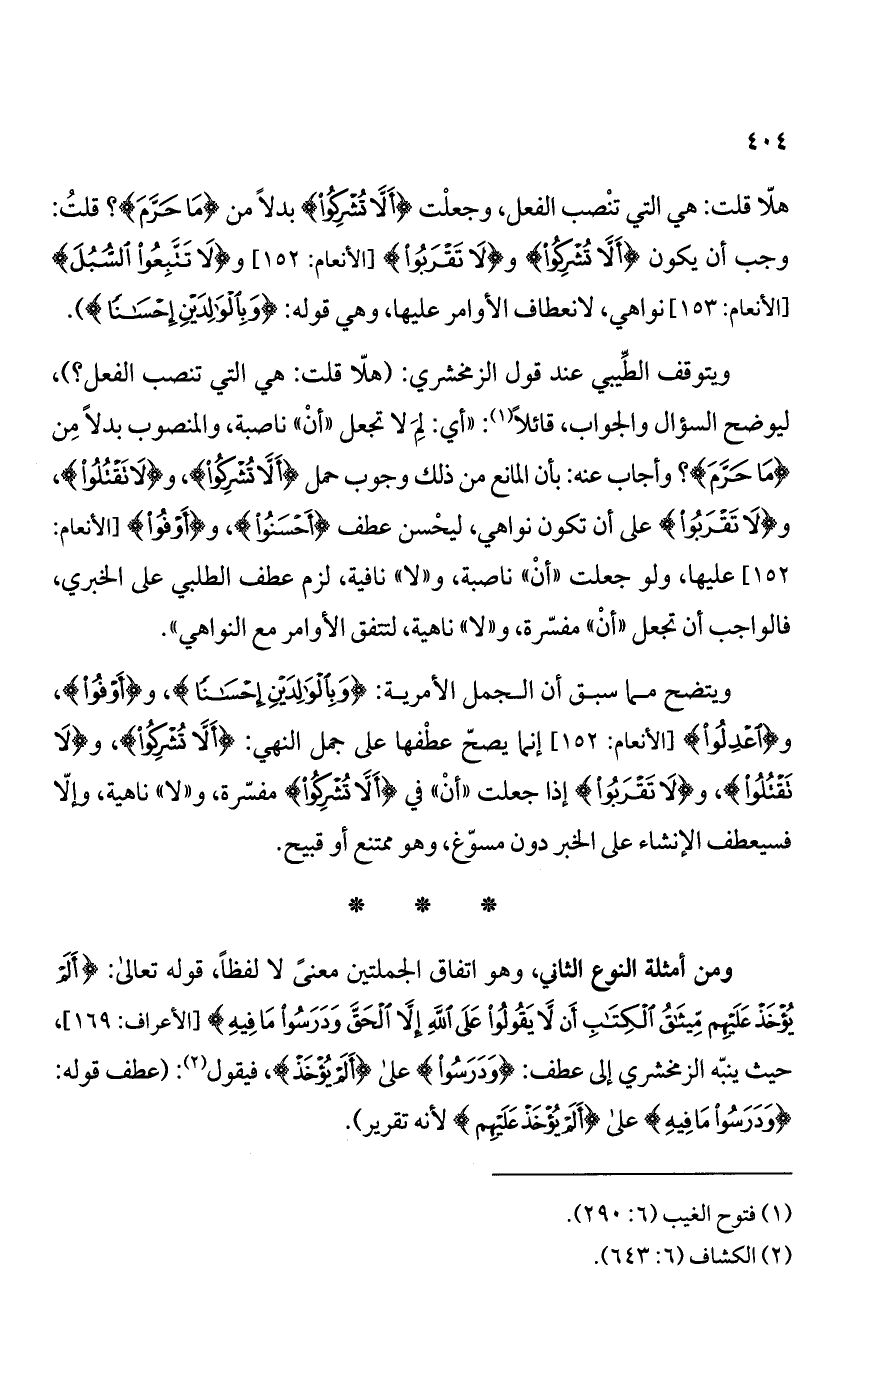 ٤٠٤
هلّا قلت: هي التي تنْصب الفعل، وجعلْت ﴿أَلَّا تُشْرِكُوا۟﴾ بدلاً من ﴿مَا حَرَّمَ﴾؟ قلتُ:
وجب أن يكون ﴿أَلَّا تُشْرِكُوا۟﴾ و﴿لَا تَقْرَبُوا۟﴾ [الأنعام: ١٥٢] و﴿لَا تَنَّبِعُوا۟ ٱلسُّبُلَ﴾
[الأنعام: ١٥٣] نواهي، لانعطاف الأوامر عليها، وهي قوله: ﴿وَبِٱلْوَٰلِدَيْنِ إِحْسَـٰنًا﴾).
ويتوقف الطِّيبي عند قول الزمخشري: (هلّا قلت: هي التي تنصب الفعل؟)،
ليوضح السؤال والجواب، قائلاً(١): «أي: لِمَ لا تجعل «أنْ» ناصبة، والمنصوب بدلاً مِن
﴿مَا حَرَّمَ﴾؟ وأجاب عنه: بأن المانع من ذلك وجوب حمل ﴿أَلَّا تُشْرِكُوا۟﴾، و﴿لَا تَقْتُلُوا۟﴾،
و﴿لَا تَقْرَبُوا۟﴾ على أن تكون نواهي، ليحْسن عطف ﴿أَحْسَنُوا۟﴾، و﴿أَوْفُوا۟﴾ [الأنعام:
١٥٢] عليها، ولو جعلت «أنْ» ناصبة، و«لا» نافية، لزم عطف الطلبي على الخبري،
فالواجب أن تجعل «أنْ» مفسّرة، و«لا» ناهية، لتتفق الأوامر مع النواهي».
ويتضح مما سبق أن الجمل الأمرية: ﴿وَبِٱلْوَٰلِدَيْنِ إِحْسَـٰنًا﴾، و﴿أَوْفُوا۟﴾،
و﴿ٱعْدِلُوا۟﴾ [الأنعام: ١٥٢] إنما يصحّ عطْفها على جمل النهي: ﴿أَلَّا تُشْرِكُوا۟﴾، و﴿لَا
تَقْتُلُوا۟﴾، و﴿لَا تَقْرَبُوا۟﴾ إذا جعلت «أنْ» في ﴿أَلَّا تُشْرِكُوا۟﴾ مفسّرة، و«لا» ناهية، وإلّا
فسيعطف الإنشاء على الخبر دون مسوّغ، وهو ممتنع أو قبيح.
* * *
ومن أمثلة النوع الثاني، وهو اتفاق الجملتين معنىً لا لفظاً، قوله تعالىٰ: ﴿أَلَمْ
يُؤْخَذْ عَلَيْهِم مِّيثَـٰقُ ٱلْكِتَـٰبِ أَن لَّا يَقُولُوا۟ عَلَى ٱللَّهِ إِلَّا ٱلْحَقَّ وَدَرَسُوا۟ مَا فِيهِ﴾ [الأعراف: ١٦٩]،
حيث ينبّه الزمخشري إلى عطف: ﴿وَدَرَسُوا۟﴾ علىٰ ﴿أَلَمْ يُؤْخَذْ﴾، فيقول(٢): (عطف قوله:
﴿وَدَرَسُوا۟ مَا فِيهِ﴾ علىٰ ﴿أَلَمْ يُؤْخَذْ عَلَيْهِم﴾ لأنه تقرير).
(١) فتوح الغيب (٦: ٢٩٠).
(٢) الكشاف (٦: ٦٤٣).